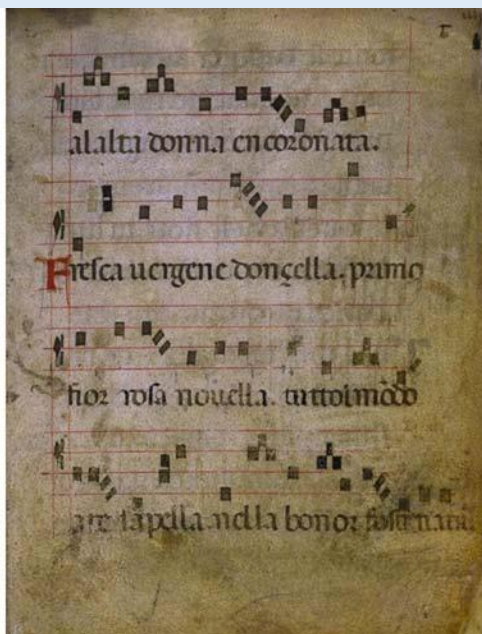 al alta donna encoronata.
Fresca uergene donçella. primo
fior rosa nouella. tuttol mōdo
a te sapella. nella bonor fosti nata